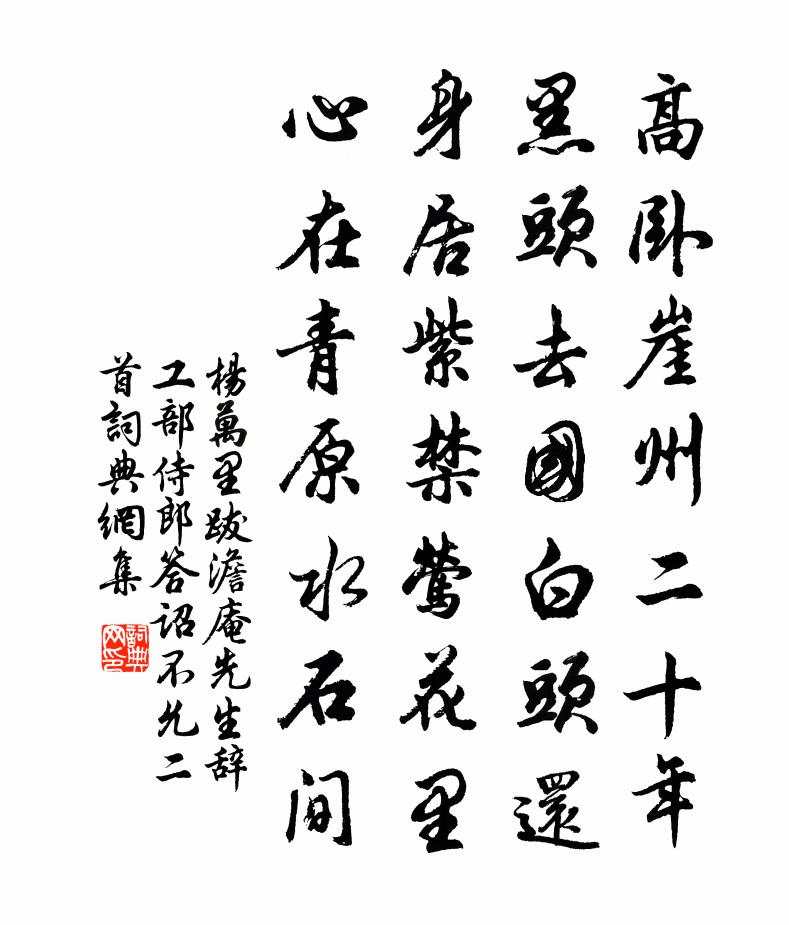 高卧崖州二十年
黑頭去國白頭還
身居紫禁鶯花里
心在青原水石間
楊萬里跋澹庵先生辞
工部侍郎答詔不允二
首詞典網集
詞典
网印